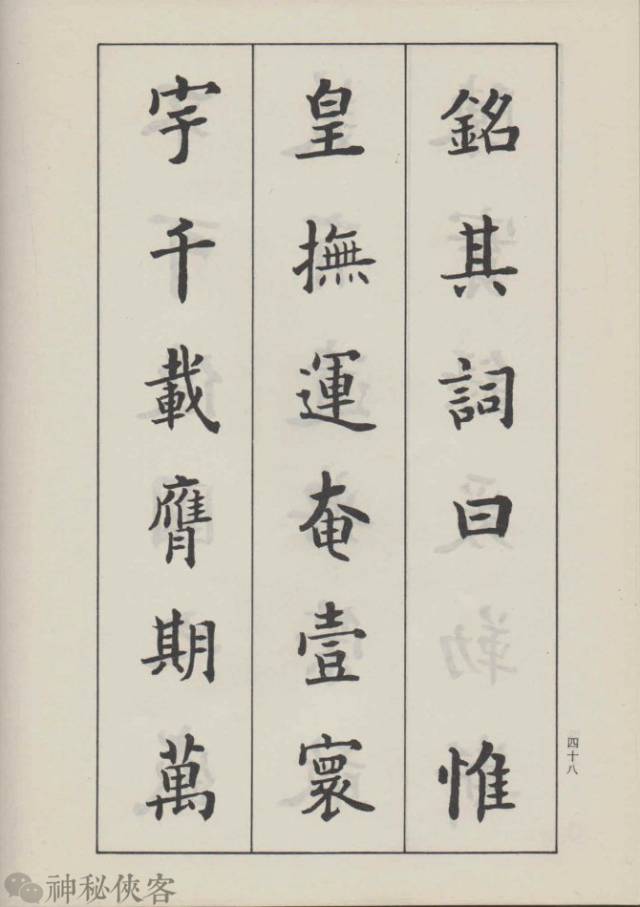 銘其詞曰惟
皇撫運奄壹寰
宇千載膺期萬
四十八
神秘俠客